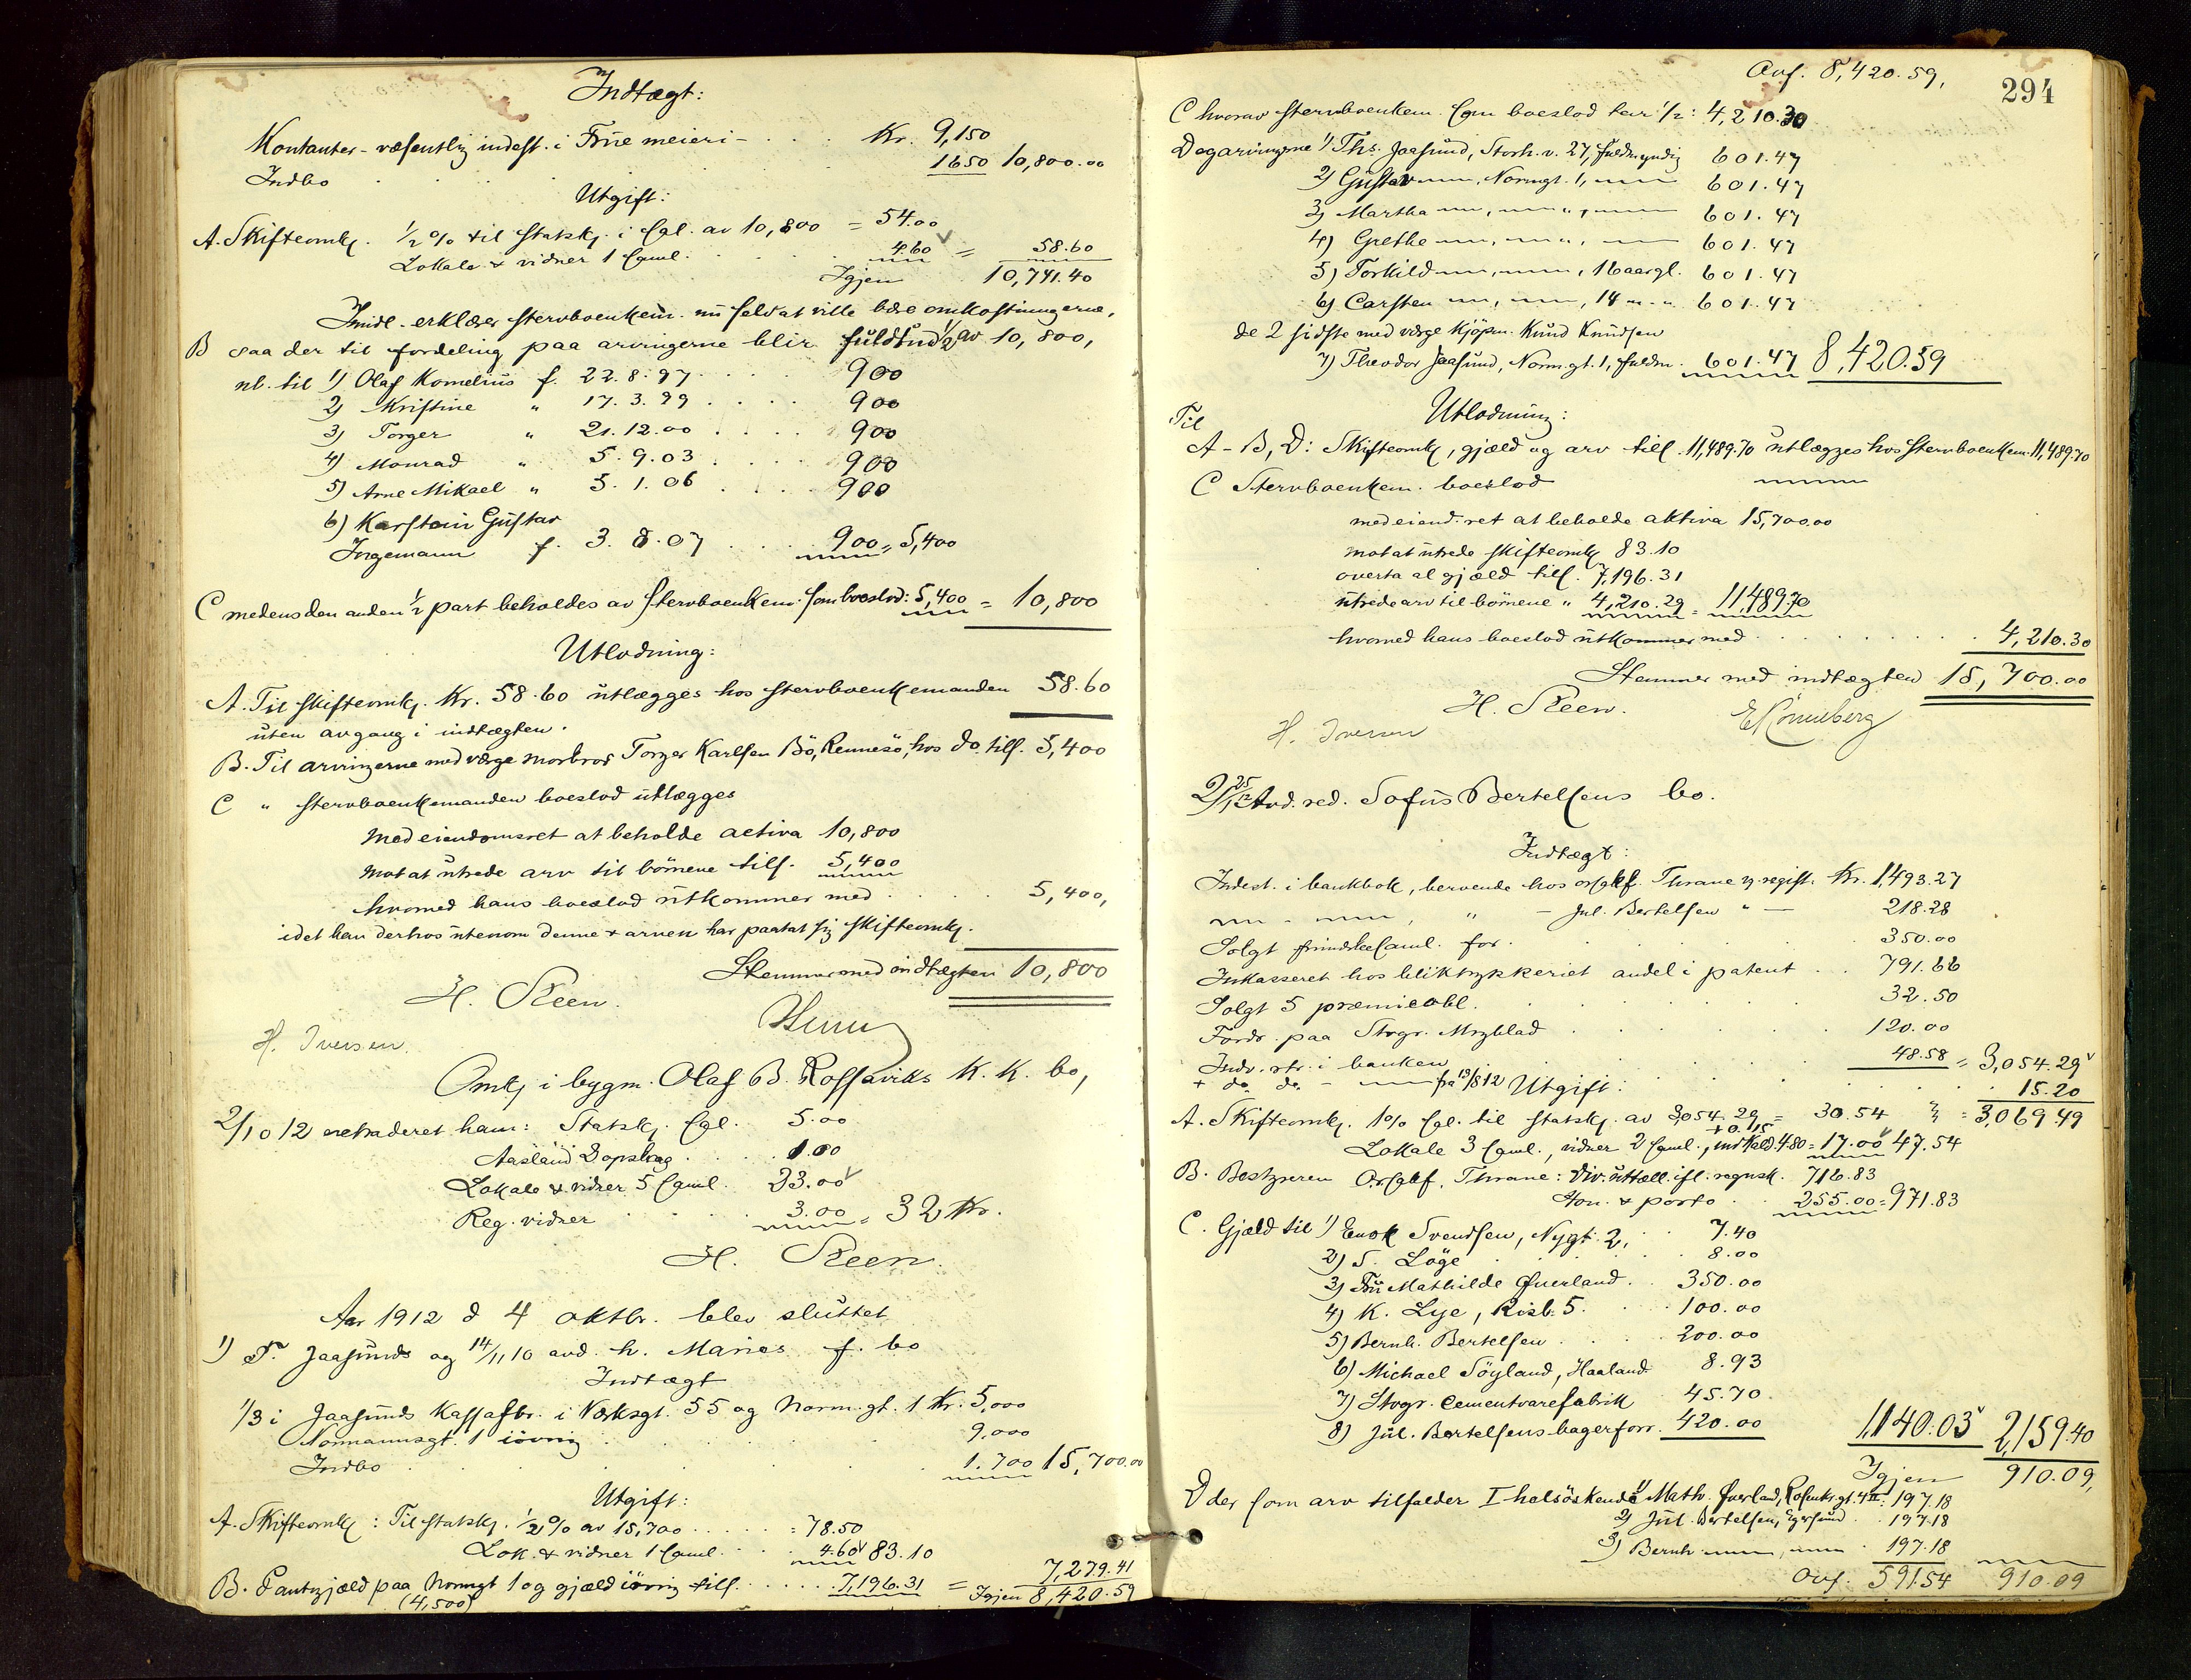 Indtægt:
Kontanter - væsentlig indest. i Frue meieri - . . . Kr. 9,150
Indbo . . . 1650 10,800.00
Utgift:
A. Skifteomk. 1/2 % til statskj. i fgl. av 10,800 = 54.00
Lokale & vidner 1 saml. . . . 4.60 = 58.60
Igjen 10,741.40
Imidl. erklærer stervboenkem. nu selv at ville bære omkostningerne,
B saa der til fordeling paa arvingerne blir fuldt ud 1/2 av 10,800,
nl. til 1) Olaf Kornelius f. 22.8.97 . . . 900
2) Kristine " 17.3.99 . . . 900
3) Torger " 21.12.00 . . . 900
4) Monrad " 5.9.03 . . . 900
5) Arne Mikael " 5.1.06 . . . 900
6) Karstein Gustav
Ingemann f. 3.8.07 . . . 900 = 5,400
C medens den anden 1/2 part beholdes av stervboenkem. som boeslod: 5,400 = 10,800
Utlodning:
A. Til skifteomk. Kr. 58.60 utlægges hos stervboenkemanden 58.60
uten avgang i indtægten.
B. Til arvingerne med værge morbror Torger Karlsen Bö, Rennesö, hos do. tils. 5,400
C " stervboenkemanden boeslod utlægges
med eiendomsret at beholde activa 10,800
mot at utrede arv til børnene tils. 5,400
hvormed hans boeslod utkommer med . . . 5,400,
idet han derhos utenom denne & arven har paatat sig skifteomk.
Stemmer med indtægten 10,800
H. Steen.
H. Iversen.
Omk. i bygm. Olaf B. Rossaviks K. K. bo,
2/10 12 extraderet ham: Statskj. fgl. 5.00
Aasland Dopslag . . 1.00
Lokale & vidner 5 saml. 23.00
Reg. vidner . . . 3.00 = 32 Kr.
H. Steen.
Aar 1912 d 4 oktbr. blev sluttet
1) T. Jaasunds og 14/11 10 avd. h. Maries f. bo
Indtægt
1/3 i Jaasunds Kassafbr. i Verksgt. 55 og Norm.gt. 1 Kr. 5,000
Normannsgt. 1 iövrig . . . 9,000
Indbo . . . 1.700 15,700.00
Utgift:
A. Skifteomk: Til statskj. 1/2 % av 15,700 . . . = 78.50
Lok. & vidner 1 saml. . . . 4.60 83.10
B. Pantegjæld paa Normgt 1 og gjæld iövrig tils. . . . 7,196.31 = 7,279.41
(4,500) Igjen 8,420.59
294
Ovf. 8,420.59,
C hvorav stervboenkem. som boeslod tar 1/2: 4,210.30
D og arvingerne 1) Ths. Jaasund, Storh.v. 27, fuldmyndig 601.47
2) Gustav —, Normgt. 1, — 601.47
3) Martha —, — ", — 601.47
4) Grethe —, — ", — 601.47
5) Torkild —, —, 16 aar gl. 601.47
6) Carsten —, —, 14 " " 601.47
de 2 sidste med værge kjöpm. Knud Knudsen
7) Theodor Jaasund, Norm.gt. 1, fuldm. 601.47 8,420.59
Utlodning:
Til
A - B, D: Skifteomk, gjæld og arv tils. 11,489.70 utlægges hos stervboenkem. 11,489.70
C Stervboenkem. boeslod —
med eiend.ret at beholde aktiva 15,700.00
mot at utrede skifteomk 83.10
overta al gjæld tils. 7,196.31
utrede arv til börnene " 4,210.29 = 11,489.70
hvormed hans boeslod utkommer med . . . 4,210.30
Stemmer med indtægten 15,700.00
H. Steen.
H. Iversen
2) 25/1 12 avd. red. Sofus Bertelsens bo.
Indtægt:
Indest. i bankbok, beroende hos orsgkf. Thrane ved regist. Kr. 1,493.27
— " — , " — Jul. Bertelsen " — 218.28
Solgt frimerkesaml. for . . . 350.00
Inkasseret hos bliktrykkeriet andel i patent . . 791.66
Solgt 5 præmieobl. . . . 32.50
Fordr. paa Stvgr. Mrgblad . . . 120.00
Indv. rtr. i banken . . . 48.58 = 3,054.29
+ do. do. - — fra 13/8 12 . . . 15.20
Utgift:
3,069.49
A. Skifteomk. 1% fgl. til statskj. av 3,054.29 = 30.54
+ 0.15
Lokale 3 saml., vidner 2 saml., indkald. 4.80 = 17.00 47.54
B. Bestyreren Orsgkf. Thrane: Div. uttæll. ifl. regnsk. 716.83
Hon. & porto . . 255.00 = 971.83
C. Gjæld til 1) Enok Svendsen, Nygt. 2, . . 7.40
2) S. Löge . . . 8.00
3) Fru Mathilde Qverland . . 350.00
4) K. Lye, Risb. 5. . . 100.00
5) Bernh. Bertelsen . . . 200.00
6) Michael Söyland, Haaland 8.93
7) Stvgr. Cementvarefabrik 45.70
8) Jul. Bertelsens bagerforr. 420.00 1,140.03 2,159.40
Igjen 910.09,
D der som arv tilfalder I helsöskende 1) Math. Qverland, Rosenkr.gt. 4 II: 197.18
2) Jul. Bertelsen, Egersund . . 197.18
3) Bernh. —, — . 197.18 —
Ovf. 591.54 910.09